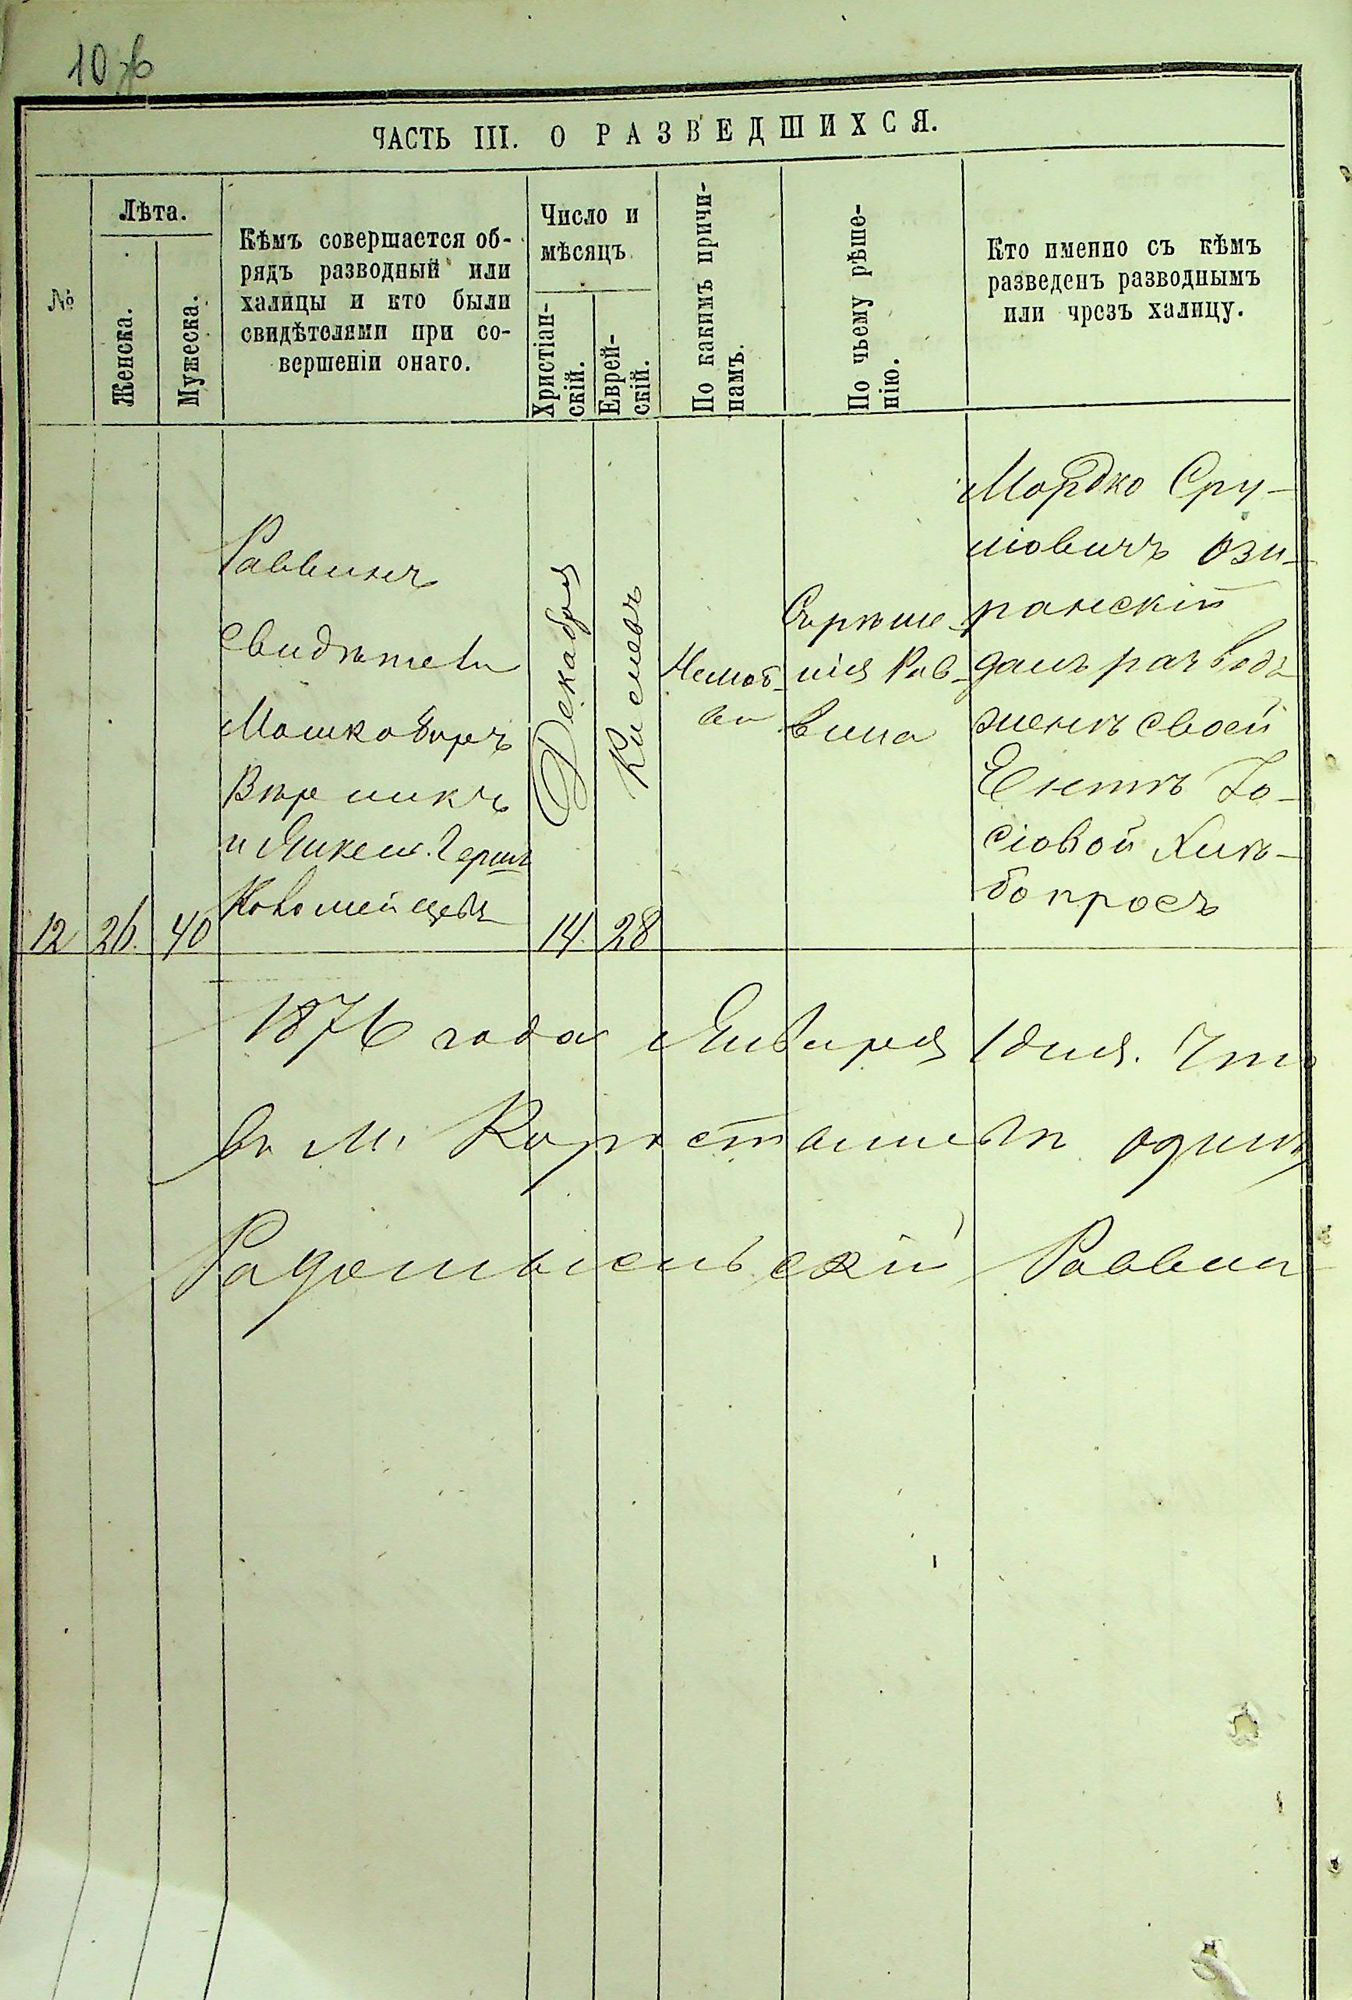 10
ЧАСТЬ III. О РАЗВЕДШИХСЯ.
№
Лѣта.
Женска.
Мужеска.
Кѣмъ совершается об-
рядъ разводный или
халицы и кто были
свидѣтелями при со-
вершеніи онаго.
Число и
мѣсяцъ.
Христіан-
скій.
Еврей-
скій.
По какимъ причи-
намъ.
По чьему рѣше-
нію.
Кто именно съ кѣмъ
разведенъ разводнымъ
или чрезъ халицу.
12
26.
40
Раввинъ
свидѣтели
Мошко
и Янкель Герш
Коломейцевъ
Декабря
14
Кислевъ
28
Нелюб-
ви
Съ рѣше-
нія Рав-
вина
Мордко Сру-
лiовичъ Ози-
ранскій
далъ разводъ
женѣ своей
Ентѣ Іо-
сіовой
1876 года Января 1 дня. Что
въ м.
Радомысльскій Раввин